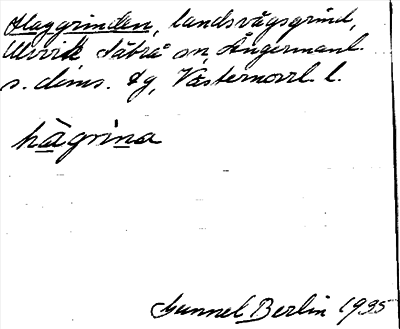 Haggrinden, landsvägsgrind,
Ulvvik, Nätrå sn, Ångermanl.
s. doms. dg, Västernorrl. l.
hàgrina
Gunnel Berlin 1935